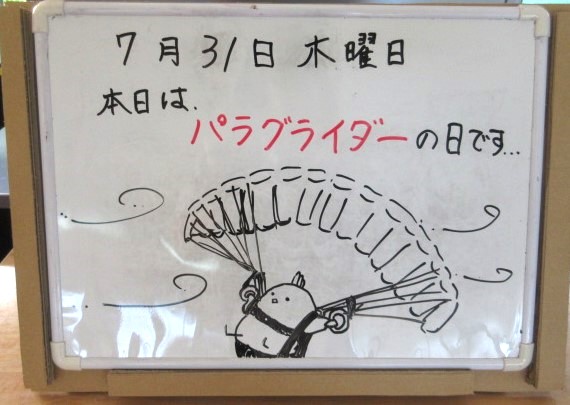 7月31日 木曜日
本日は、
パラグライダーの日です...